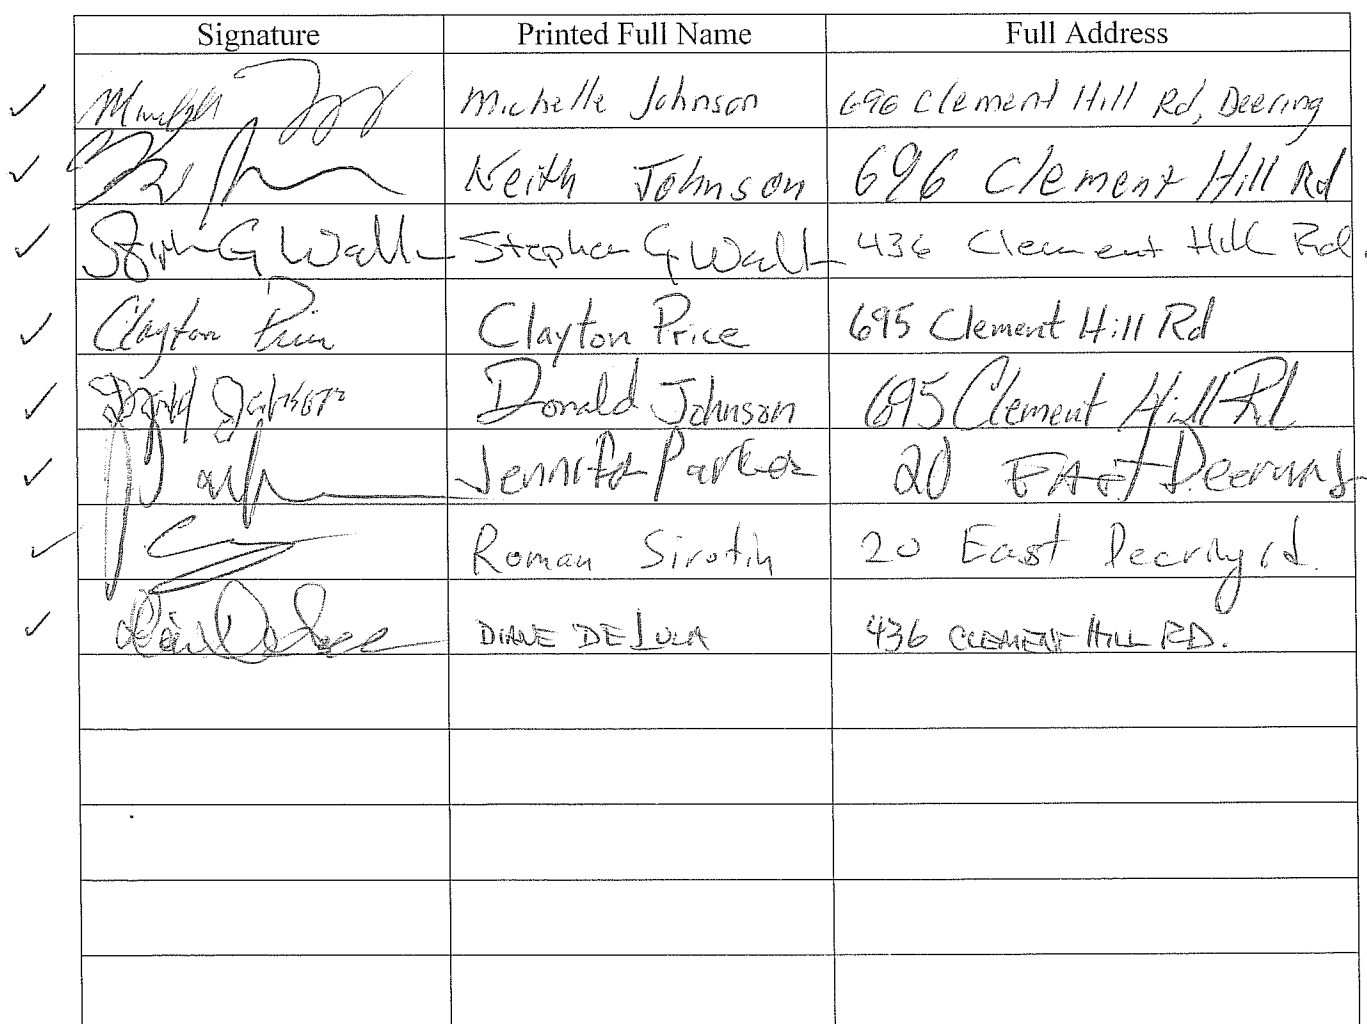 Signature Printed Full Name Full Address
Michelle Johnson 696 Clement Hill Rd, Deering
Keith Johnson 696 Clement Hill Rd
Stephen G Wall 436 Clement Hill Rd.
Clayton Price Clayton Price 695 Clement Hill Rd
Donald Johnson Donald Johnson 695 Clement Hill Rd
Jennifer Parker 20 EAST Deering
Roman Sirotin 20 East Deering rd.
DIANE DE LUCA 436 CLEMENT HILL RD.